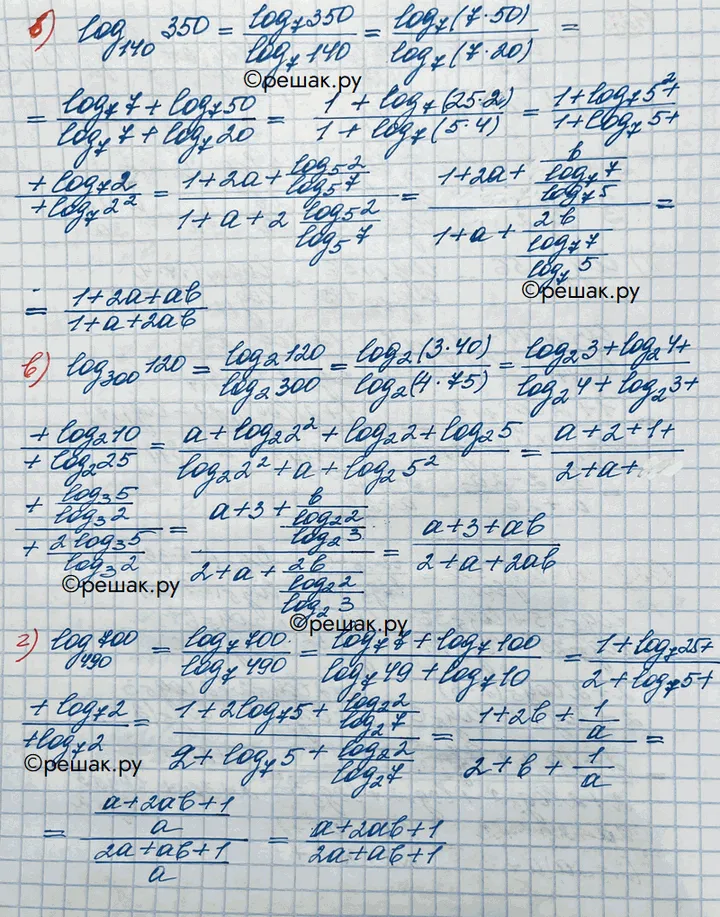 б) log₁₄₀ 350 = log₇350 / log₇140 = log₇(7·50) / log₇(7·20) =
©решак.ру
= (log₇7 + log₇50) / (log₇7 + log₇20) = (1 + log₇(25·2)) / (1 + log₇(5·4)) = (1 + log₇5² + / 1 + log₇5 +
+ log₇2 / + log₇2²) = (1 + 2a + log₅2 / log₅7) / (1 + a + 2 log₅2 / log₅7) = (1 + 2a + b / (log₇7 / log₇5)) / (1 + a + 2b / (log₇7 / log₇5)) =
©решак.ру
= (1 + 2a + ab) / (1 + a + 2ab)
в) log₃₀₀ 120 = log₂120 / log₂300 = log₂(3·40) / log₂(4·75) = (log₂3 + log₂4 + / log₂4 + log₂3 +
+ log₂10 / + log₂25) = (a + log₂2² + log₂2 + log₂5) / (log₂2² + a + log₂5²) = (a + 2 + 1 + / 2 + a +
+ log₃5 / log₃2 / + 2log₃5 / log₃2) = (a + 3 + b / (log₂2 / log₂3)) / (2 + a + 2b / (log₂2 / log₂3)) = (a + 3 + ab) / (2 + a + 2ab)
©решак.ру
©решак.ру
г) log₄₉₀ 700 = log₇700 / log₇490 = (log₇7 + log₇100) / (log₇49 + log₇10) = (1 + log₇25 + / 2 + log₇5 +
+ log₇2 / + log₇2) = (1 + 2log₇5 + log₂2 / log₂7) / (2 + log₇5 + log₂2 / log₂7) = (1 + 2b + 1/a) / (2 + b + 1/a) =
©решак.ру
= ((a + 2ab + 1) / a) / ((2a + ab + 1) / a) = (a + 2ab + 1) / (2a + ab + 1)